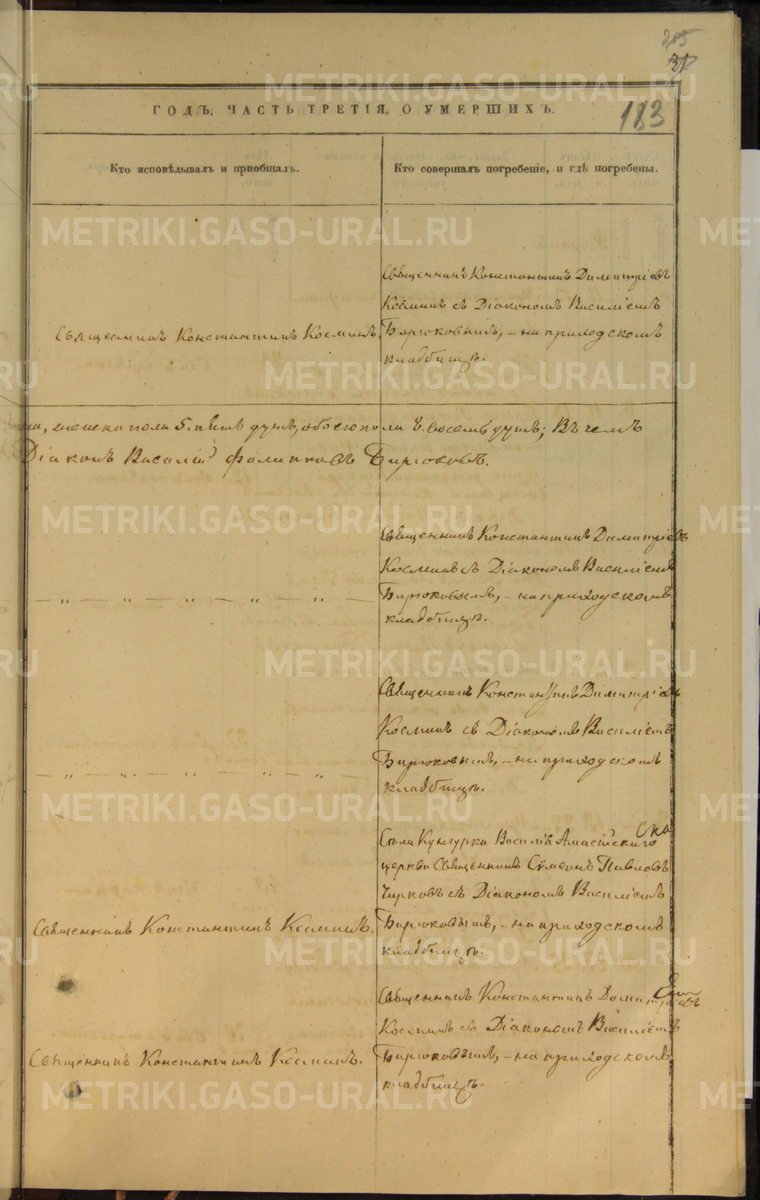 205
31
183
ГОДЪ, ЧАСТЬ ТРЕТІЯ, О УМЕРШИХЪ.
Кто исповѣдывалъ и пріобщалъ.
Кто совершалъ погребеніе, и гдѣ погребены.
Священникъ Константинъ Димитріевъ
Косминъ съ Діакономъ Василіемъ
Священникъ Константинъ Косминъ.
Бирюковымъ, – на приходскомъ
кладбищѣ.
женска пола 5. пять душъ, обоего пола 8. восемь душъ; Въ чемъ
Діаконъ Василій Филипповъ Бирюковъ.
Священникъ Константинъ Димитріевъ
Косминъ съ Діакономъ Василіемъ
— „ — „ — „ — „ — „ —
Бирюковымъ, – на приходскомъ
кладбищѣ.
Священникъ Константинъ Димитріевъ
Косминъ съ Діакономъ Василіемъ
— „ — „ — „ — „ — „ —
Бирюковымъ, – на приходскомъ
кладбищѣ.
Села Кунгурка Василъ Амасійского
церкви Священникъ Сѵмеонъ Павловъ
Чирковъ съ Діакономъ Василіемъ
Священникъ Константинъ Косминъ.
Бирюковымъ, – на приходскомъ
кладбищѣ.
Священникъ Константинъ Димитріевъ
Косминъ съ Діакономъ Василіемъ
Священникъ Константинъ Косминъ.
Бирюковымъ, – на приходскомъ
кладбищѣ.
METRIKI.GASO-URAL.RU